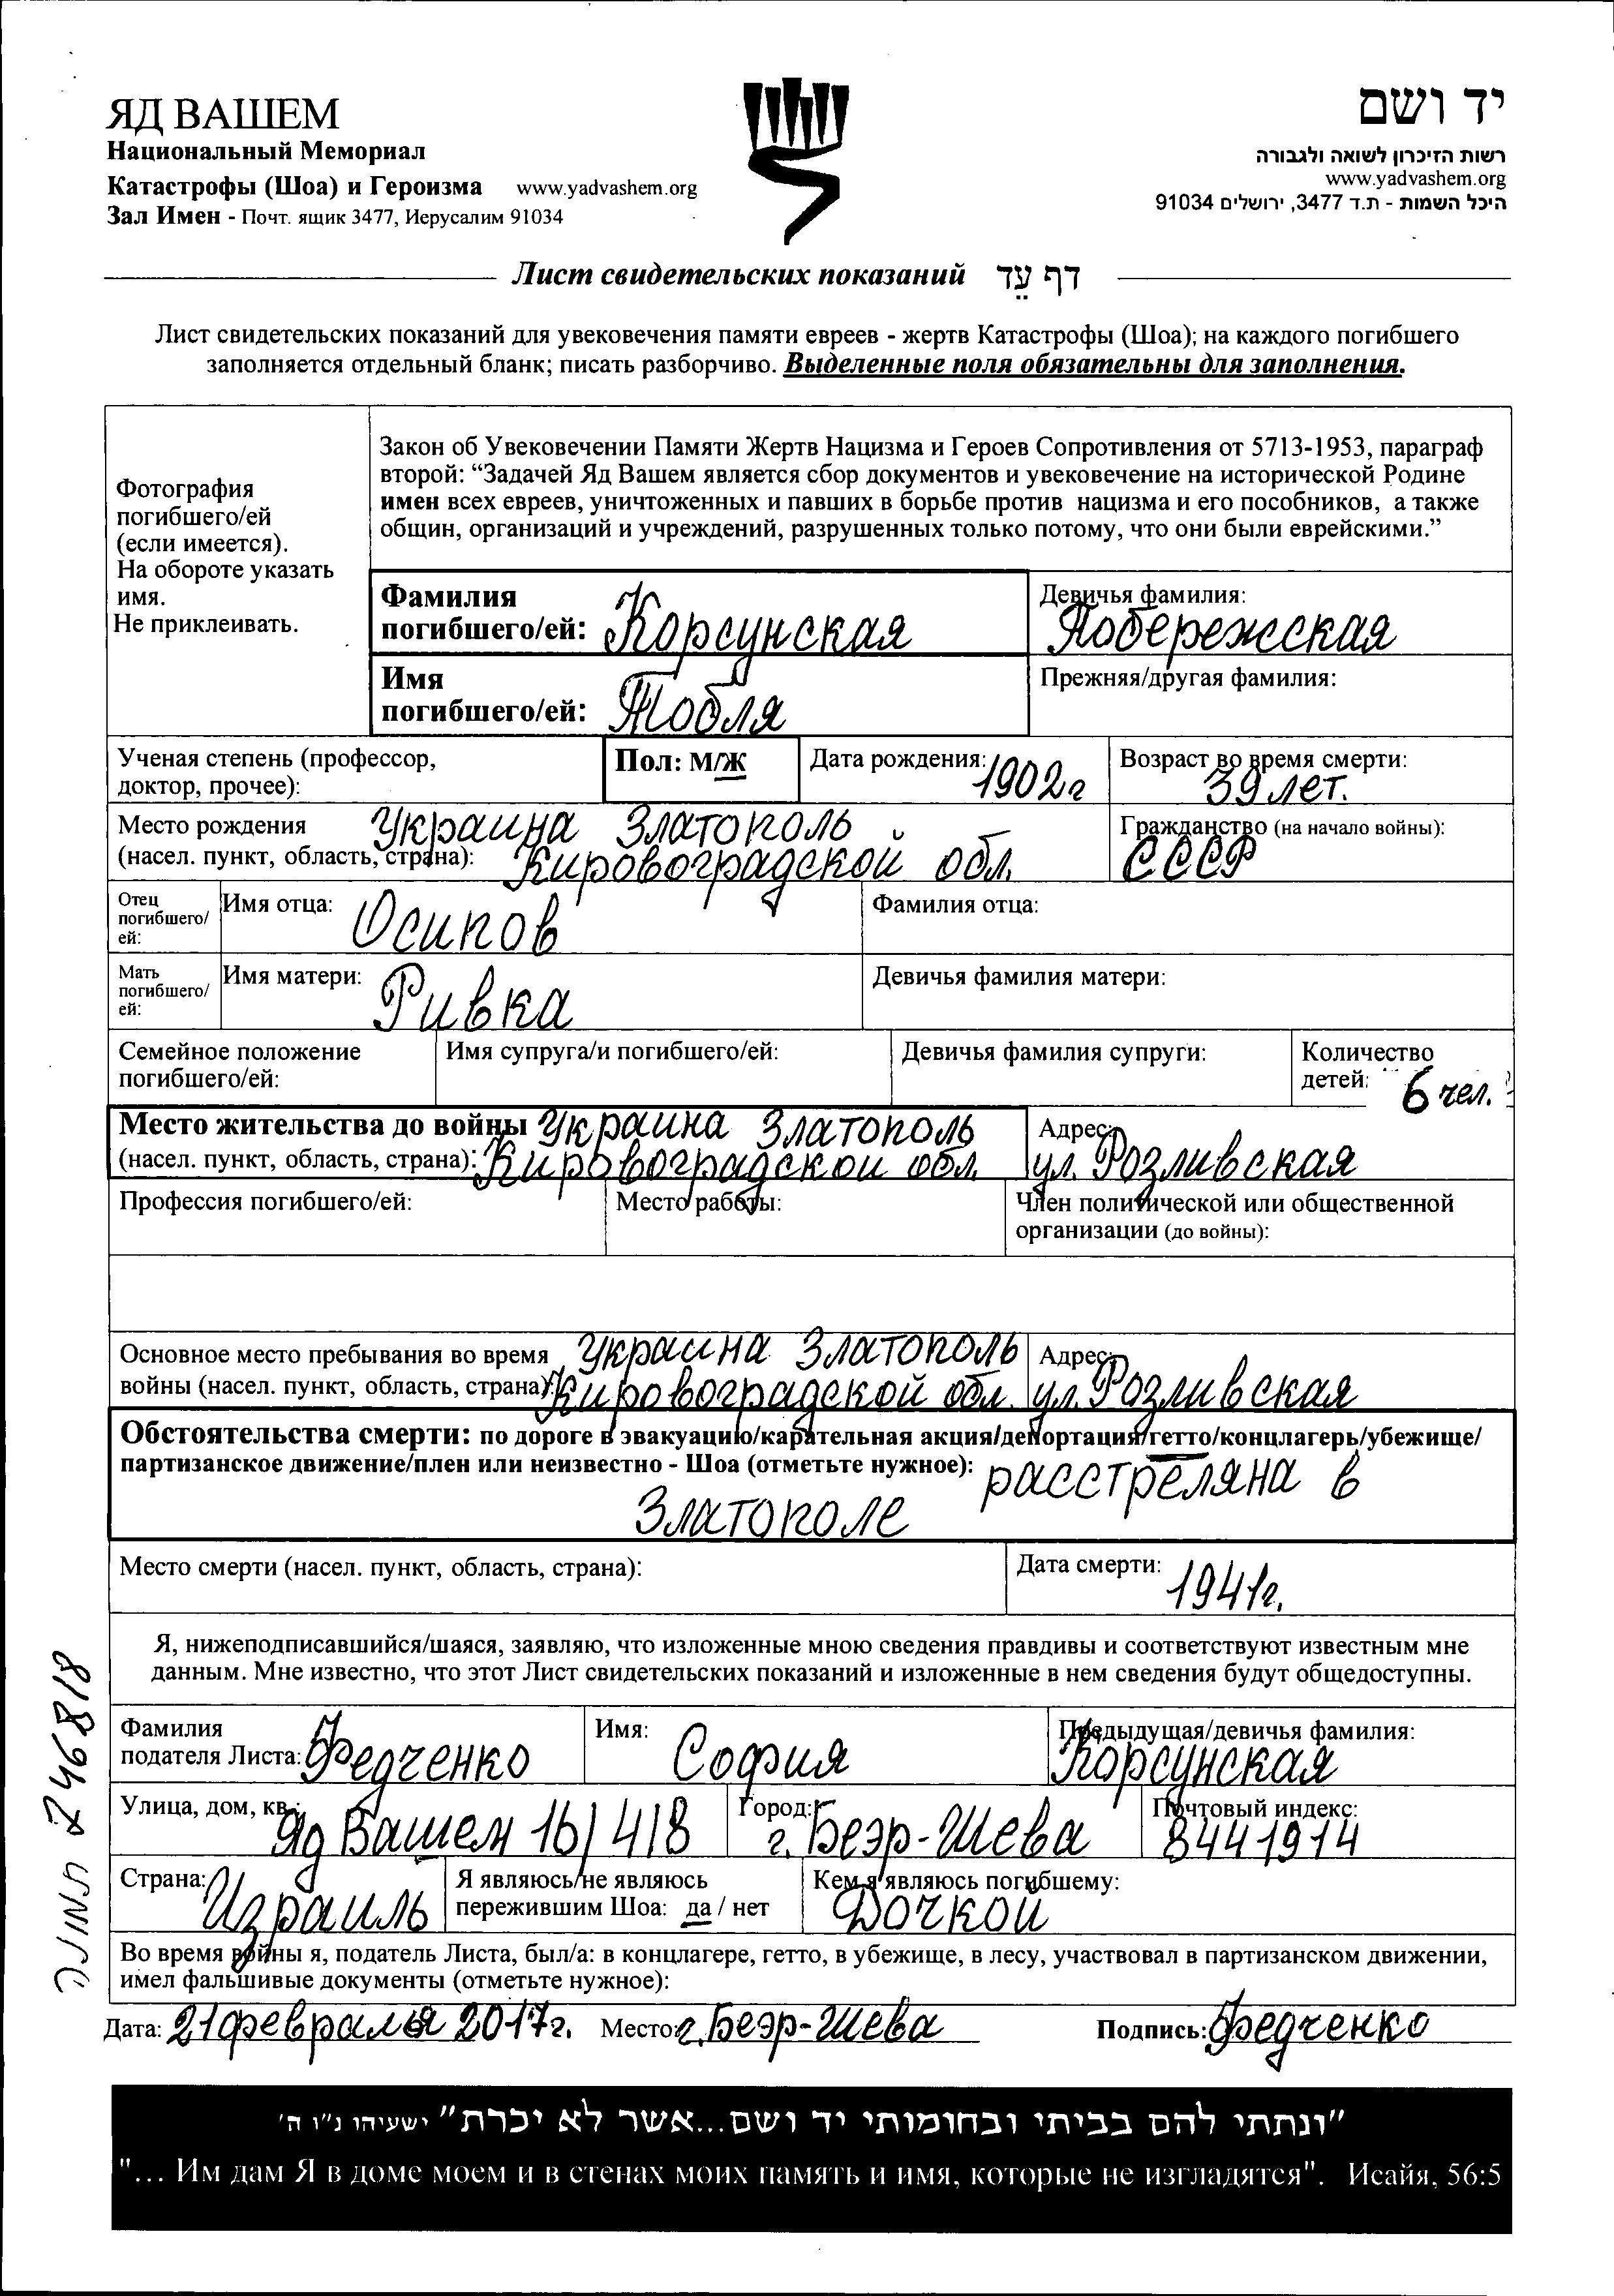 ЯД ВАШЕМ
Национальный Мемориал
Катастрофы (Шоа) и Героизма www.yadvashem.org
Зал Имен - Почт. ящик 3477, Иерусалим 91034
יד ושם
רשות הזיכרון לשואה ולגבורה
www.yadvashem.org
היכל השמות - ת.ד 3477, ירושלים 91034
Лист свидетельских показаний דף עֵד
Лист свидетельских показаний для увековечения памяти евреев - жертв Катастрофы (Шоа); на каждого погибшего
заполняется отдельный бланк; писать разборчиво. Выделенные поля обязательны для заполнения.
Фотография
погибшего/ей
(если имеется).
На обороте указать
имя.
Не приклеивать.
Закон об Увековечении Памяти Жертв Нацизма и Героев Сопротивления от 5713-1953, параграф
второй: “Задачей Яд Вашем является сбор документов и увековечение на исторической Родине
имен всех евреев, уничтоженных и павших в борьбе против нацизма и его пособников, а также
общин, организаций и учреждений, разрушенных только потому, что они были еврейскими.”
Фамилия
погибшего/ей: Корсунская
Девичья фамилия:
Побережская
Имя
погибшего/ей: Тобля
Прежняя/другая фамилия:
Ученая степень (профессор,
доктор, прочее):
Пол: М/Ж
Дата рождения: 1902г
Возраст во время смерти:
39 лет.
Место рождения Украина Златополь
(насел. пункт, область, страна): Кировоградской обл.
Гражданство (на начало войны):
СССР
Отец
погибшего/
ей:
Имя отца: Осипов
Фамилия отца:
Мать
погибшего/
ей:
Имя матери: Ривка
Девичья фамилия матери:
Семейное положение
погибшего/ей:
Имя супруга/и погибшего/ей:
Девичья фамилия супруги:
Количество
детей: 6 чел.
Место жительства до войны Украина Златополь
(насел. пункт, область, страна): Кировоградской обл.
Адрес:
ул. Розливская
Профессия погибшего/ей:
Место работы:
Член политической или общественной
организации (до войны):
Основное место пребывания во время Украина Златополь
войны (насел. пункт, область, страна): Кировоградской обл.
Адрес:
ул. Розливская
Обстоятельства смерти: по дороге в эвакуацию/карательная акция/депортация/гетто/концлагерь/убежище/
партизанское движение/плен или неизвестно - Шоа (отметьте нужное): расстреляна в
Златополе
Место смерти (насел. пункт, область, страна):
Дата смерти: 1941г.
Я, нижеподписавшийся/шаяся, заявляю, что изложенные мною сведения правдивы и соответствуют известным мне
данным. Мне известно, что этот Лист свидетельских показаний и изложенные в нем сведения будут общедоступны.
Фамилия
подателя Листа: Федченко
Имя: София
Предыдущая/девичья фамилия:
Корсунская
Улица, дом, кв.:
Яд Вашем 16/418
Город:
г. Беэр-Шева
Почтовый индекс:
8441914
Страна:
Израиль
Я являюсь/не являюсь
пережившим Шоа: да / нет
Кем я являюсь погибшему:
Дочкой
Во время войны я, податель Листа, был/а: в концлагере, гетто, в убежище, в лесу, участвовал в партизанском движении,
имел фальшивые документы (отметьте нужное):
Дата: 21 февраля 2017г. Место: г. Беэр-Шева Подпись: Федченко
246818
"ונתתי להם בביתי ובחומותי יד ושם...אשר לא יכרת" ישעיהו נ"ו ה'
"... Им дам Я в доме моем и в стенах моих память и имя, которые не изгладятся". Исайя, 56:5